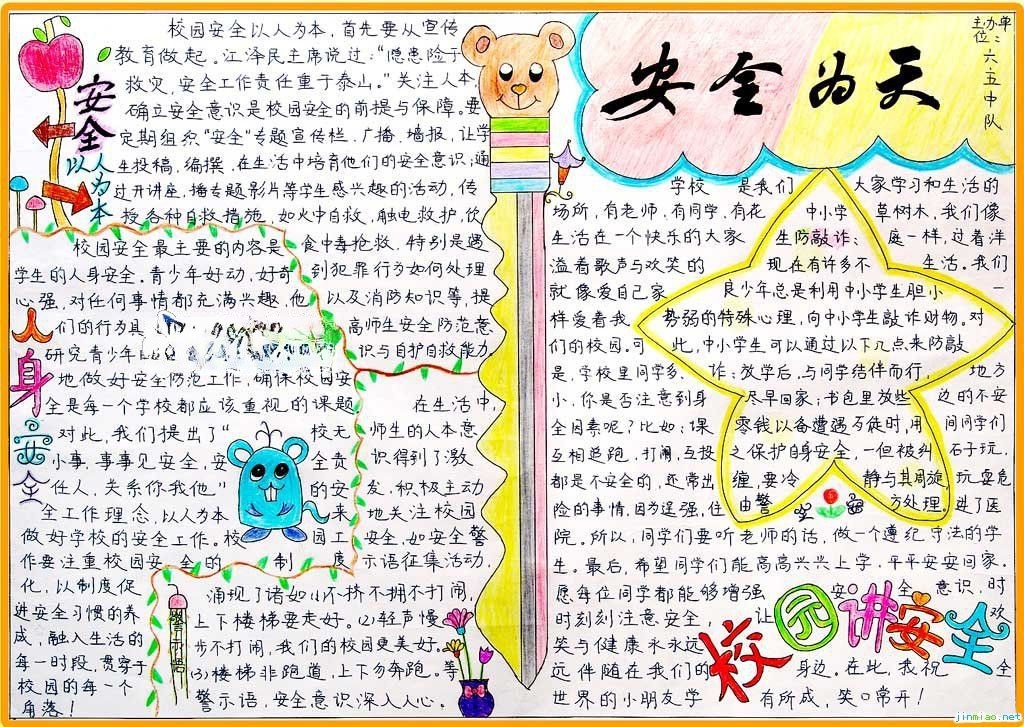 主办单
位：六、五中队
安全为天
安全
以人为本
校园安全以人为本，首先要从宣传
教育做起。江泽民主席说过："隐患险于
救灾，安全工作责任重于泰山。"关注人本，
确立安全意识是校园安全的前提与保障。要
定期组织"安全"专题宣传栏、广播、墙报，让学
生投稿、编撰，在生活中培育他们的安全意识；通
过开讲座、播专题影片等学生感兴趣的活动，传
授各种自救措施，如火中自救，触电救护，饮
食中毒抢救，特别是遇
到犯罪行为如何处理
以及消防知识等，提
高师生安全防范意
识与自护自救能力。
人身安全
校园安全最主要的内容是
学生的人身安全。青少年好动，好奇
心强，对任何事情都充满兴趣，他
们的行为具
研究青少年
地做好安全防范工作，确保校园安
全是每一个学校都应该重视的课题
对此，我们提出了"校无
小事，事事见安全，安全责
任人，关系你我他"的安
全工作理念，以人为本来
做好学校的安全工作。校园工
作要注重校园安全的制度
化，以制度促
进安全习惯的养
成，融入生活的
每一时段，贯穿于
校园的每一个
角落！
在生活中，
师生的人本意
识得到了激
发，积极主动
地关注校园
安全，如安全警
示语征集活动，
警示语
涌现了诸如⑴不挤不拥不打闹，
上下楼梯要走好。⑵轻声慢
步不打闹，我们的校园更美好。
⑶楼梯非跑道，上下勿奔跑。等
警示语，安全意识深入人心。
学校是我们大家学习和生活的
场所，有老师，有同学，有花草树木，我们像
生活在一个快乐的大家庭一样，过着洋
溢着歌声与欢笑的生活。我们
就像爱自己家一
样爱着我
们的校园。可
是，学校里同学多，地方
小，你是否注意到身边的不安
全因素呢？比如：课间同学们
互相追跑、打闹，互投石子玩，
都是不安全的，还常出玩耍危
险的事情，因为逞强，住进了医
院。所以，同学们要听老师的话，做一个遵纪守法的学
生。最后，希望同学们能高高兴兴上学，平平安安回家。
愿每位同学都能够增强安全意识，时
时刻刻注意安全，让欢
笑与健康永永远
远伴随在我们的身边。在此，我祝全
世界的小朋友学有所成，笑口常开！
中小学
生防敲诈：
现在有许多不
良少年总是利用中小学生胆小
势弱的特殊心理，向中小学生敲诈财物。对
此，中小学生可以通过以下几点来防敲
诈：放学后，与同学结伴而行，
尽早回家；书包里放些
零钱以备遭遇歹徒时，用
之保护自身安全，一但被纠
缠，要冷静与其周旋，
由警方处理。
校园讲安全
jinmiao.net